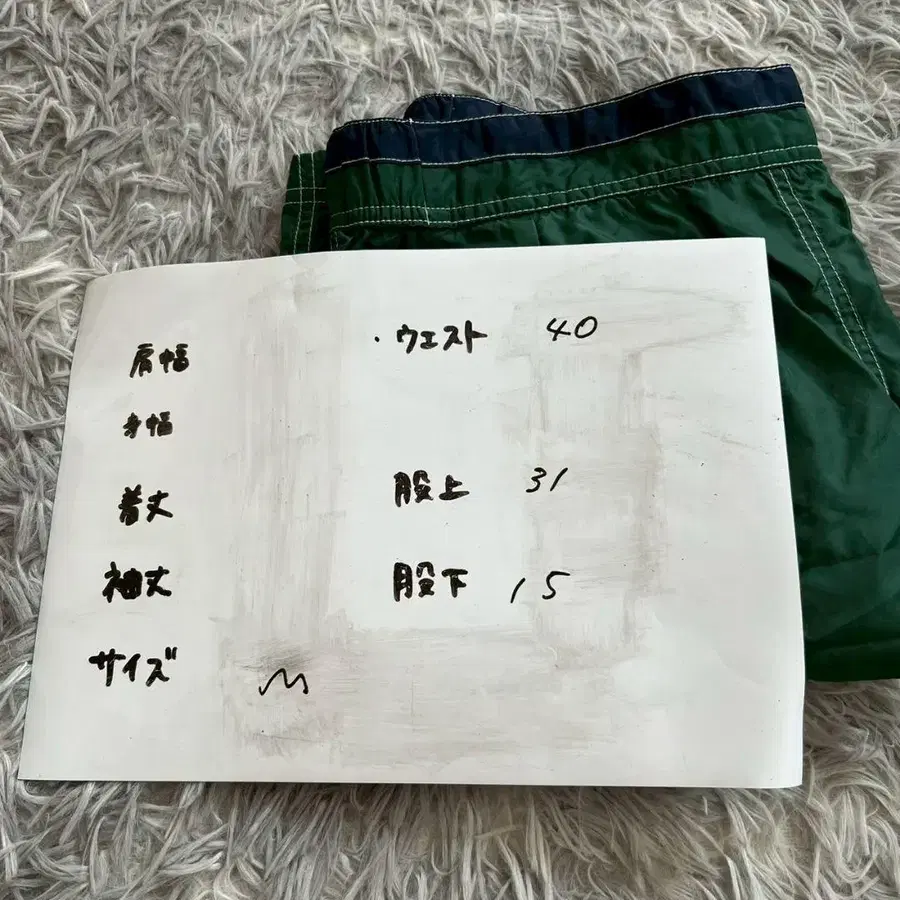 肩幅
身幅
着丈
袖丈
サイズ M
・ウエスト 40
股上 31
股下 15